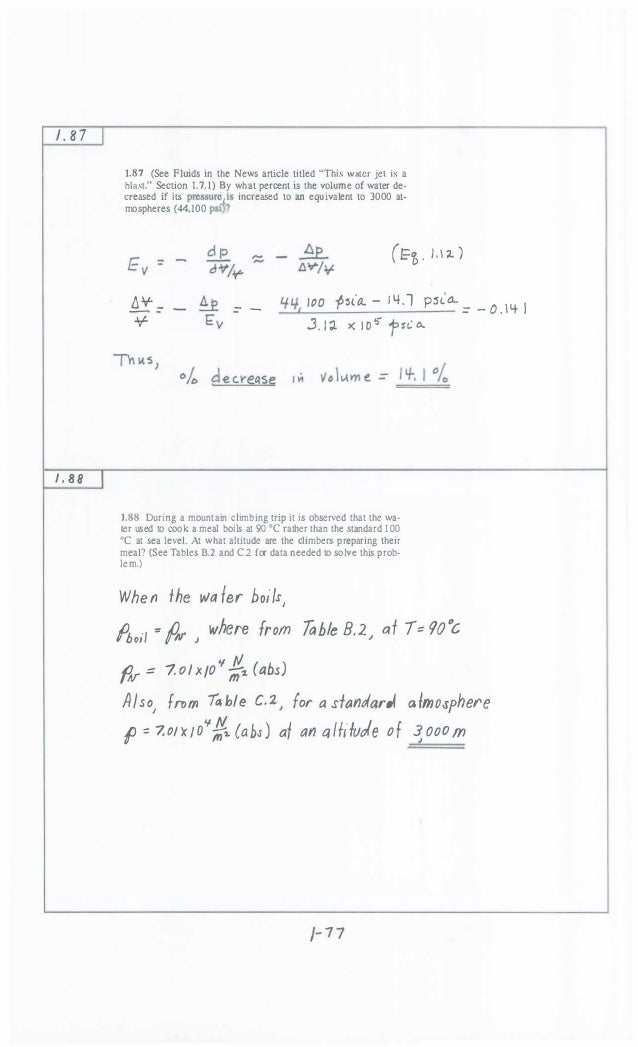 1.87
1.87 (See Fluids in the News article titled "This water jet is a
blast." Section 1.7.1) By what percent is the volume of water de-
creased if its pressure, is increased to an equivalent to 3000 at-
mospheres (44,100 psi)?
E_v = - dp / (dV/V) ≈ - Δp / (ΔV/V) (Eq. 1.12)
ΔV/V = - Δp/E_v = - (44,100 psia - 14.7 psia) / (3.12 x 10^5 psia) = -0.141
Thus,
% decrease in volume = 14.1 %
1.88
1.88 During a mountain climbing trip it is observed that the wa-
ter used to cook a meal boils at 90 °C rather than the standard 100
°C at sea level. At what altitude are the climbers preparing their
meal? (See Tables B.2 and C.2 for data needed to solve this prob-
lem.)
When the water boils,
p_boil = p_v, where from Table B.2, at T=90°C
p_v = 7.01x10^4 N/m^2 (abs)
Also, from Table C.2, for a standard atmosphere
p = 7.01x10^4 N/m^2 (abs) at an altitude of 3,000 m
1-77